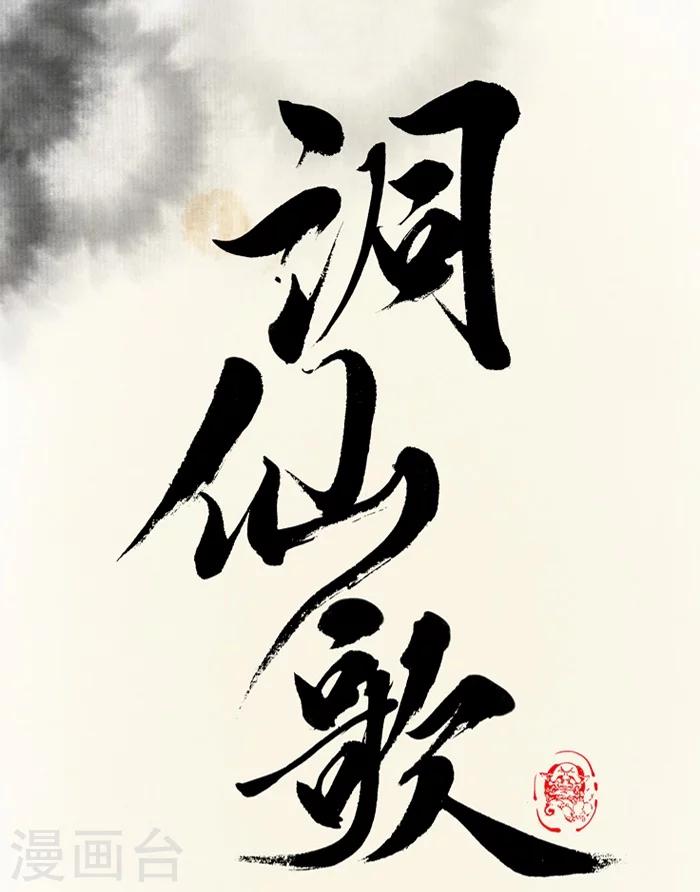 洞仙歌
漫画台